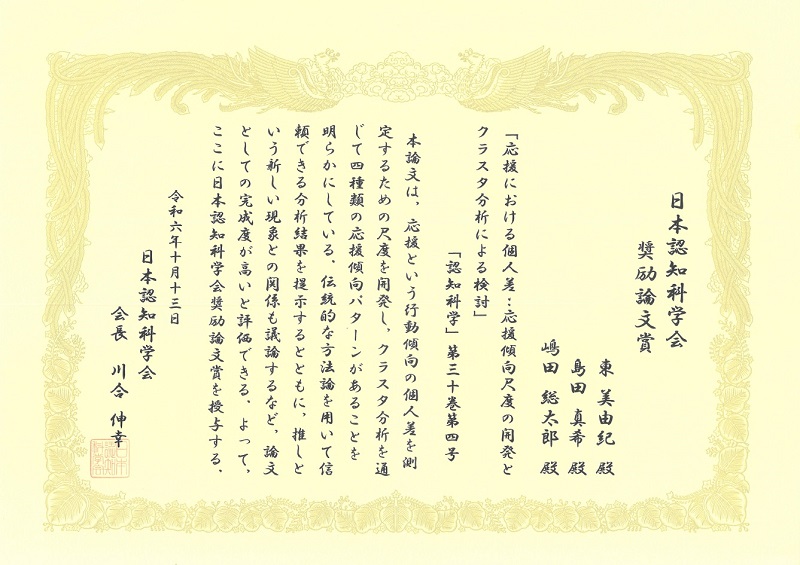 日本認知科学会
奨励論文賞
東 美由紀 殿
島田 真希 殿
嶋田 総太郎 殿
「応援における個人差:応援傾向尺度の開発と
クラスタ分析による検討」
「認知科学」第三十巻第四号
本論文は、応援という行動傾向の個人差を測
定するための尺度を開発し、クラスタ分析を通
じて四種類の応援傾向パターンがあることを
明らかにしている。伝統的な方法論を用いて信
頼できる分析結果を提示するとともに、推しと
いう新しい現象との関係も議論するなど、論文
としての完成度が高いと評価できる。よって、
ここに日本認知科学会奨励論文賞を授与する。
令和六年十月十三日
日本認知科学会
会長 川合 伸幸